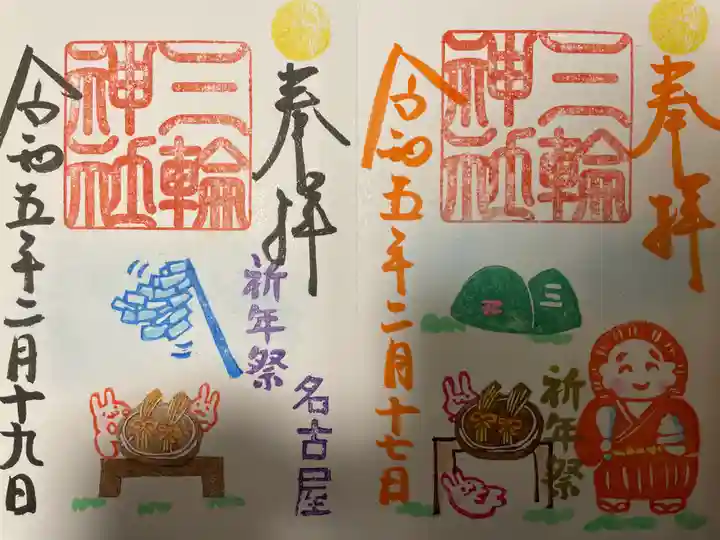 奉拝
三輪
神社
祈年祭
令和五年二月十七日
奉拝
三輪
神社
祈年祭
名古屋
令和五年二月十九日